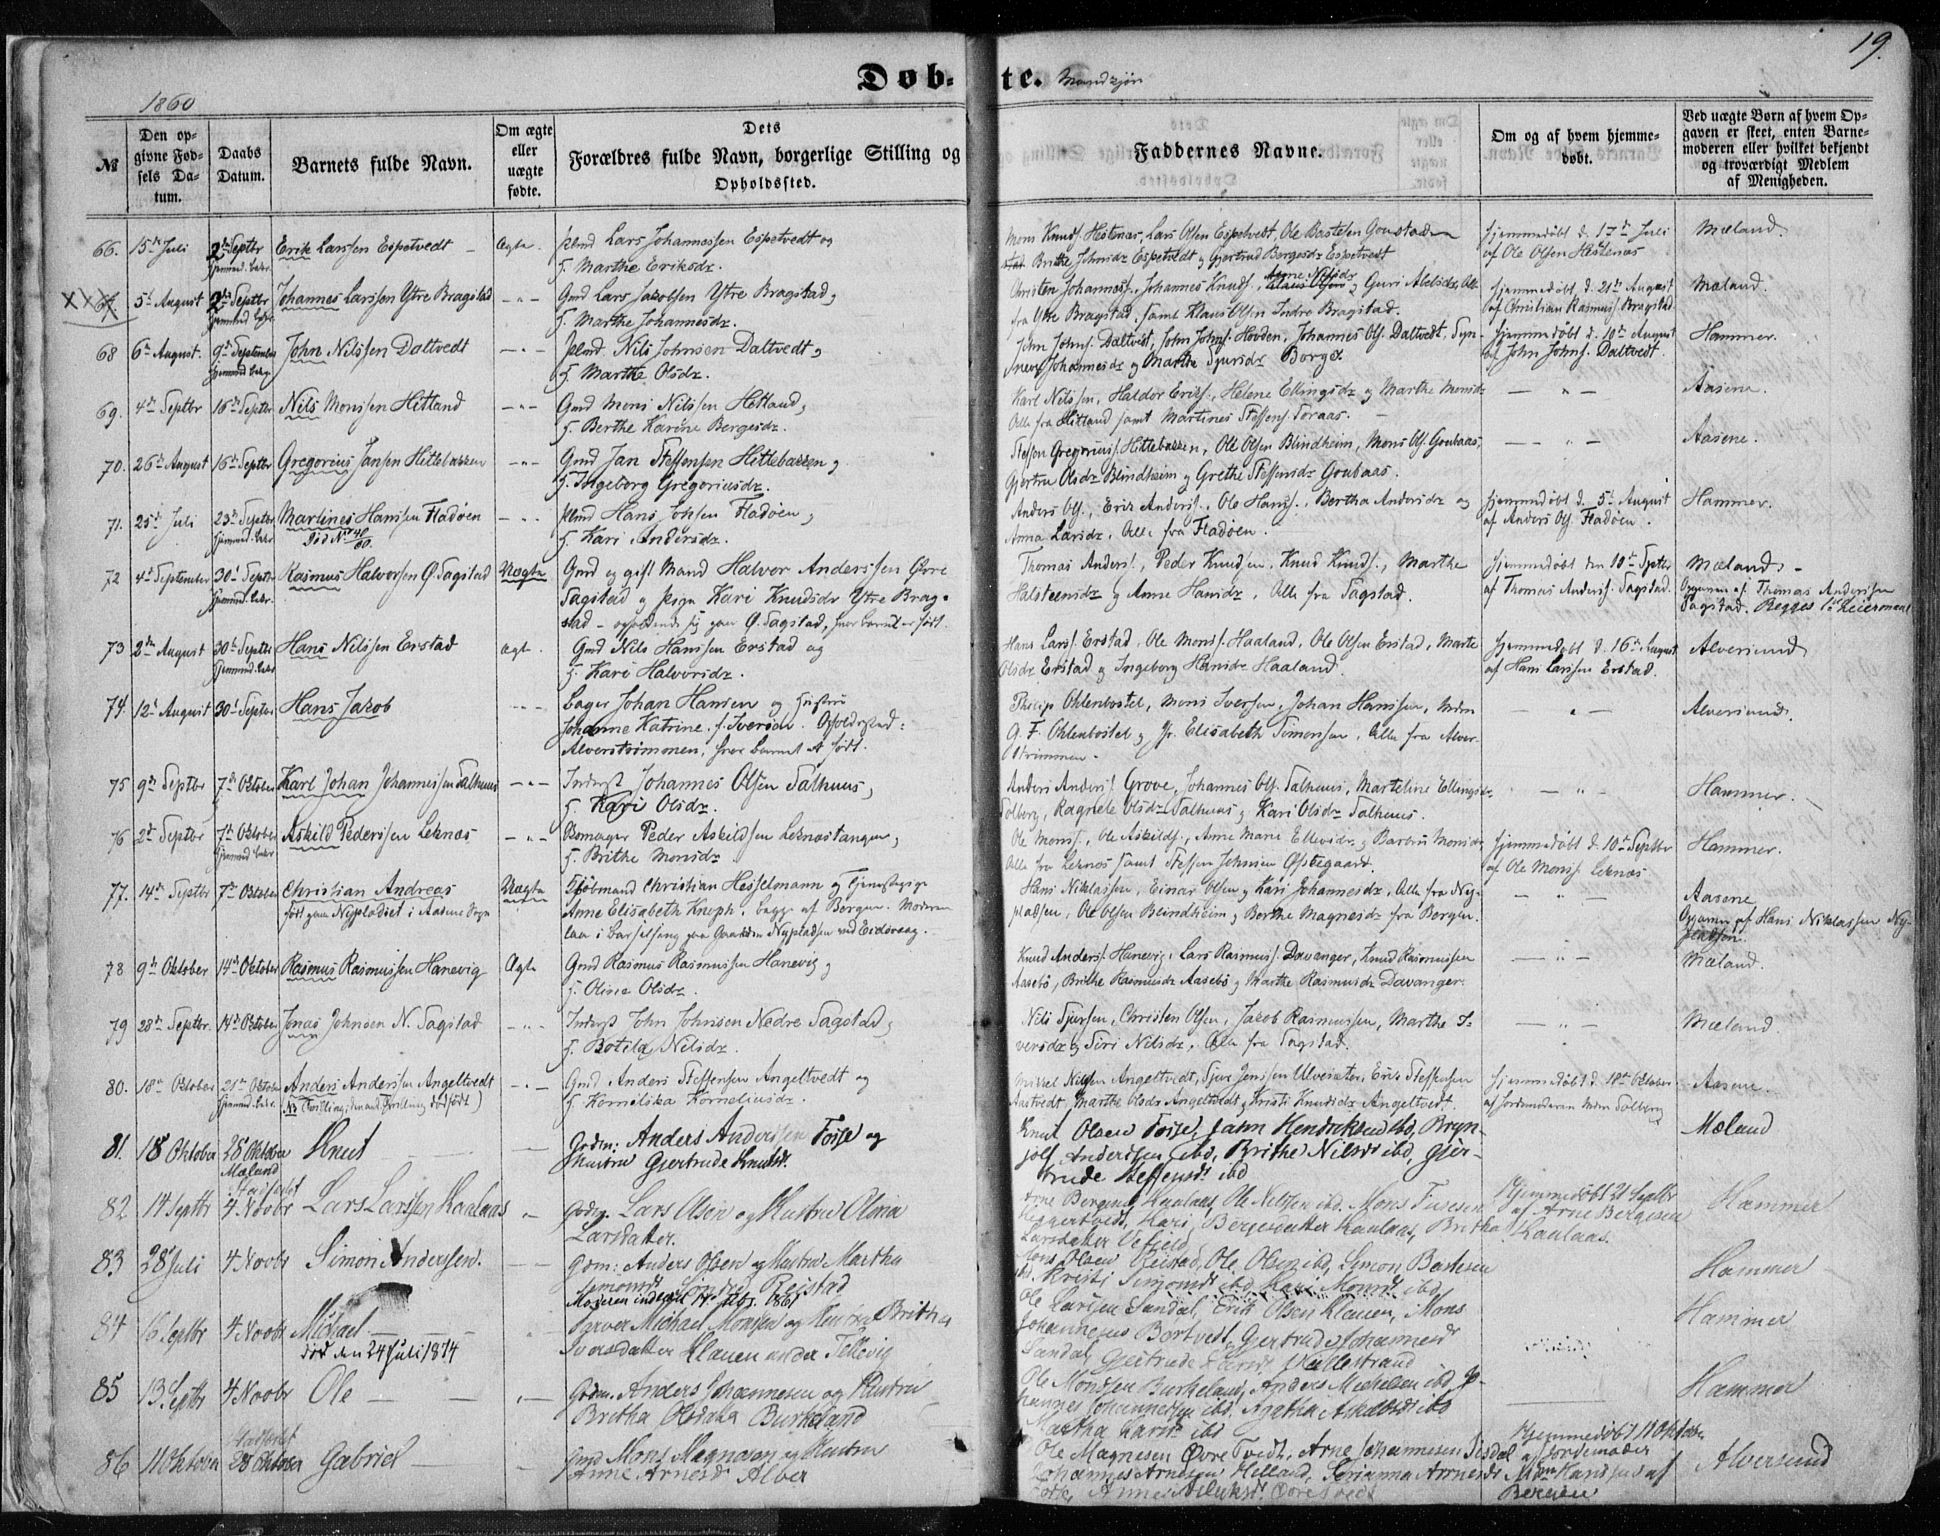 19.
Døb-
te. Mandkjøn
1860
№
Den op-
givne Fød-
sels Da-
tum.
Daabs
Datum.
Barnets fulde Navn.
Om ægte
eller
uægte
fødte.
Dets
Forældres fulde Navn, borgerlige Stilling og
Opholdssted.
Faddernes Navne.
Om og af hvem hjemme-
døbt.
Ved uægte Børn af hvem Op-
gaven er skeet, enten Barne-
moderen eller hvilket bekjendt
og troværdigt Medlem
af Menigheden.
66. 15de Juli 2den Septbr Erik Larssen Espetvedt – Ægte. Lars Johannessen Espetvedt og
H. Marthe Eriksdr.
Mons Knuds. Hestenæs, Lars Olsen Espetvedt, Ole Bastesen
Brithe Johnsdr Espetvedt og Gjertrud Borgesdr Espetvedt
Hjemmedøbt d. 17de Juli
af Ole Olsen Hestenæs
Mæland.
67. 5te August 2den Septbr Johannes Larssen Ytre Bragstad – " – Gmd Lars Jacobsen Ytre Bragstad og
H. Marthe Johannesdr.
Christen Johanness., Johannes Knuds., Anne Nilsdr og Guri Alle
fra Ytre Bragstad, samt Klaus Olsen Indre Bragstad.
Hjemmedøbt d. 21de August
af Rasmus. Bragstad
Mæland.
68 6te August. 9de September John Nilssen Daltvedt – " – Nils Johnsen Daltvedt og
H. Marthe Olsdr.
John Johns. Daltvedt, John Johns. Hovden, Johannes Ols. Daltvedt, Syn-
neve Johannesdr og Marthe Sjursdr Borge
Hjemmedøbt d. 10de August
af John Johns. Daltvedt.
Hammer.
69. 4de Septbr 16de Septbr Nils Monssen Hitland – " – Gmd Mons Nilssen Hetland og
H. Berthe Karine Bergesdr.
Karl Nilssen, Haldor Eriks., Helene Ellingsdr og Marthe Monsdr
Alle fra Hitland samt Martines Steffens. Toraas.
– " –
Aasene.
70. 26de August 16de Septbr Gregorius Jansen Hittebakken – " – Gmd Jan Steffensen Hittebakken og
H. Ingeborg Gregoriusdr.
Steffen Gregorius. Hittebakken, Ole Olsen Blindheim, Mons Ols. Gonhaas,
Gjertru Olsdr Blindheim og Grethe Steffensdr Gonhaas.
– " –
Aasene.
71. 25de Juli 23de Septbr Martines Hanssen Fladøen – " – Hans Johsen Fladøen og
Død No 41/60. H. Kari Andersdr.
Anders Ols., Erik Anders., Ole Hans., Bertha Andersdr og
Anna Larsdr, Alle fra Fladøen.
Hjemmedøbt d. 5te August
af Anders Ols. Fladøen.
Hammer.
72 4de September 30te Septbr Rasmus Halvorsen Ø. Sagstad Uægte Gmd og gift Mand Halvor Anderssen Øvre
Sagstad og Pige Kari Knudsdr Ytre Brag-
stad – opholdende sig paa Ø. Sagstad, hvor barnet er født.
Thomas Anders., Peder Knudsen, Knud Knuds., Marthe
Halsteensdr og Anne Hansdr. Alle fra Sagstad.
Hjemmedøbt den 10de Septbr
af Thomas Anders. Sagstad.
Mæland. –
Opgaven af Thomas Anderssen
Sagstad. Begges 1ste Leiermaal
73 2den August 30te Septbr Hans Nilssen Erstad Ægte. Gmd Nils Hanssen Erstad og
H. Kari Halvorsdr.
Hans Lars. Erstad, Ole Mons. Haaland, Ole Olsen Erstad, Marte
Olsdr Erstad og Ingeborg Hansdr Haaland.
Hjemmedøbt d. 16de August
af Hans Larssen Erstad.
Alversund
74. 12te August 30te Septbr Hans Jakob – " – Bager Johan Hansen og Hustru
Johanne Katrine f. Iversen. Opholdssted:
Alverstrømmen, hvor barnet er født.
Philip Ohlenbostel, Mons Iversen, Johan Hanssen, Mdm
G. F. Ohlenbostel og Jfr. Elisabeth Simonsen, Alle fra Alver-
strømmen.
– " –
Alversund.
75 9de Septbr 7de Oktober Karl Johan Johannessen Salhuus – " – Inderst Johannes Olsen Salhuus,
H. Kari Olsdr.
Anders Anders. Grove, Johannes Ols. Salhuus, Marteline Ellingsdr
Solberg, Ragnele Olsdr Salhuus og Kari Olsdr Salhuus.
– " –
Hammer.
76 2den Septbr 7de Oktober Askild Pederssen Leknæs – " – Skomager Peder Askildsen Leknæstangen,
H. Brithe Monsdr
Ole Mons., Ole Askilds., Anne Marie Ellevsdr og Barbru Monsdr
Alle fra Leknæs samt Steffen Johnsen Ofstegaard.
Hjemmedøbt d. 10de Septbr
af Ole Mons. Leknæs
Hammer.
77. 14de Septbr 7de Oktober Christian Andreas Uægte Christian Hesselmann og Tjenestepige
født paa Nyplædset i Aasene Sogn Anne Elisabeth Kneph, begge af Bergen. Moderen
laa i Barselseng paa Nypladsen ved Eidsvaag.
Hans Niklassen, Einar Olsen og Kari Johannesdr, Alle fra Ny-
pladsen, Ole Olsen Blindheim og Berthe Magnesdr fra Bergen.
– " –
Aasene
Opgaven af Hans Niklassen Ny-
pladsen.
78 9de Oktober 14de Oktober Rasmus Rasmussen Hanevig Ægte Gmd Rasmus Rasmussen Hanevig og
H. Oline Olsdr.
Knud Anders. Hanevig, Lars Rasmus. Davanger, Knud Rasmussen
Aasebø, Brithe Rasmusdr Aasebø og Marthe Rasmusdr Davanger.
– " –
Mæland.
79 28de Septbr. 14de Oktober Jonas Johnsen N. Sagstad – " – Inderst John Johnsen Nedre Sagstad og
H. Botilda Nilsdr.
Nils Sjursen, Christen Olsen, Jakob Rasmussen, Marthe I-
versdr og Siri Nilsdr, Alle fra Sagstad.
– " –
Mæland.
80. 18de Oktober 21de Oktober Anders Anderssen Angeltvedt – " – Gmd Anders Steffensen Angeltvedt og
(Tvilling, den anden Tvilling dødfødt) H. Kornelika Korneliusdr.
Mikkel Nilssen Angeltvedt, Sjur Jenssen Ulvesæter, Erik Steffensen
Marthe Olsdr Angeltvedt og Kristi Knudsdr Angeltvedt.
Hjemmedøbt d. 18de Oktober
af Jordemoderen Mdm Solberg
Aasene.
81. 18 Oktober 28 Oktober Knut – Gdm: Anders Anderssen Tosse og
Mæland Hustru Gjertrude Knutsdr.
Knut Olsen Tosse, Jahn Hendriksen ibd, Bryn-
jolf Anderssen ibd, Brithe Nilsdr ibd, Gjer-
trude Steffensdr ibd
Mæland
82 14 Septbr 4 Novbr Lars Larssen Kaalaas " Gdm. Lars Olsen og Hustru Olena
Larsdatter.
Arne Bergesen Kaalaas, Ole Nilssen ibd, Mons
Heggertvedt, Kari Bergesdatter Kaalaas, Britha
Larsdatter
Hjemmedøbt 21 Septbr
af Arne Bergesen
Kaalaas.
Hammer
83. 28 Juli 4 Novbr Simon Anderssen. – Gdm: Anders Olsen og Hustru Martha
Simonsdr Reistad
Mons Olsen Reistad, Ole Olsen ibd, Simon Bastesen
ibd, Kristi Simonsdr ibd, Kari Monsdr ibd.
Hammer
84 16 Septbr 4 Novbr Michael –
død den 24 Juli 1874
Moderen 1861
Michael Monsen og Hustru Brithe
Iversdatter Klauen under Tellevig
Ole Larssen Sandal, Erik Olsen Klauen, Mons
Johannesen Bortvedt, Gjertrude Johannesdr
Sandal, Gjertrude Larsdr Hellestrand
Hammer
85 13 Septbr 4 Novbr Ole – " Gdm. Anders Johannesen og Hustru
Bretha Olsdatter Burkeland
Ole Mondsen Burkeland, Anders Michelsen ibd, Jo-
hannes Johannessen ibd, Agatha Askildsdr ibd
Martha Larsdr ibd
Hammer
86 11 Oktober 28 Oktober Gabriel – Gmd Mons Magnesen og Hustru
Anne Arnesdr Alver
Ole Magnesen Øvre Tvedt, Arne Johannesen Isdal
Johannes Arnesen Helland, Serianna Arnesdr
Anne Øvre Tvedt
Hjemmedøbt 11 Oktober
af Jordemoder
Mdm Hansen af
Bergen
Alversund